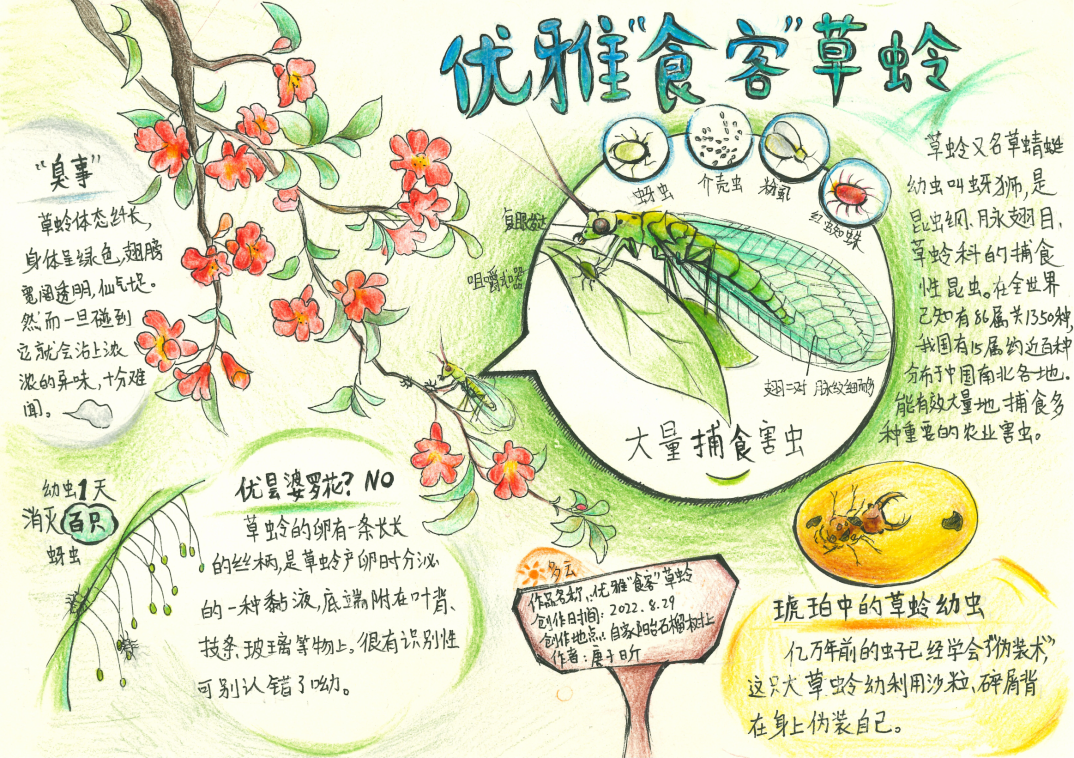 优雅“食客”草蛉
“臭事”
草蛉体态纤长,
身体呈绿色,翅膀
宽阔透明,仙气十足。
然而一旦碰到
它就会沾上浓
浓的异味,十分难
闻。
复眼发达
咀嚼式口器
蚜虫
介壳虫
粉虱
红蜘蛛
翅二对 脉纹细而多
大量捕食害虫
草蛉又名草蜻蜓
幼虫叫蚜狮,是
昆虫纲、脉翅目、
草蛉科的捕食
性昆虫。在全世界
已知有86属共1350种,
我国有15属约近百种
分布于中国南北各地.
能有效大量地捕食多
种重要的农业害虫。
幼虫1天
消灭百只
蚜虫
优昙婆罗花? NO
草蛉的卵有一条长长
的丝柄,是草蛉产卵时分泌
的一种黏液,底端附在叶背、
枝条、玻璃等物上。很有识别性
可别认错了呦。
多云
作品名称:优雅“食客”草蛉
创作日期: 2022.8.29
创作地点:自家阳台石榴树上
作者:庚子日斤
琥珀中的草蛉幼虫
亿万年前的虫子已经学会了“伪装术”,
这只大草蛉幼利用沙粒、碎屑背
在身上伪装自己。